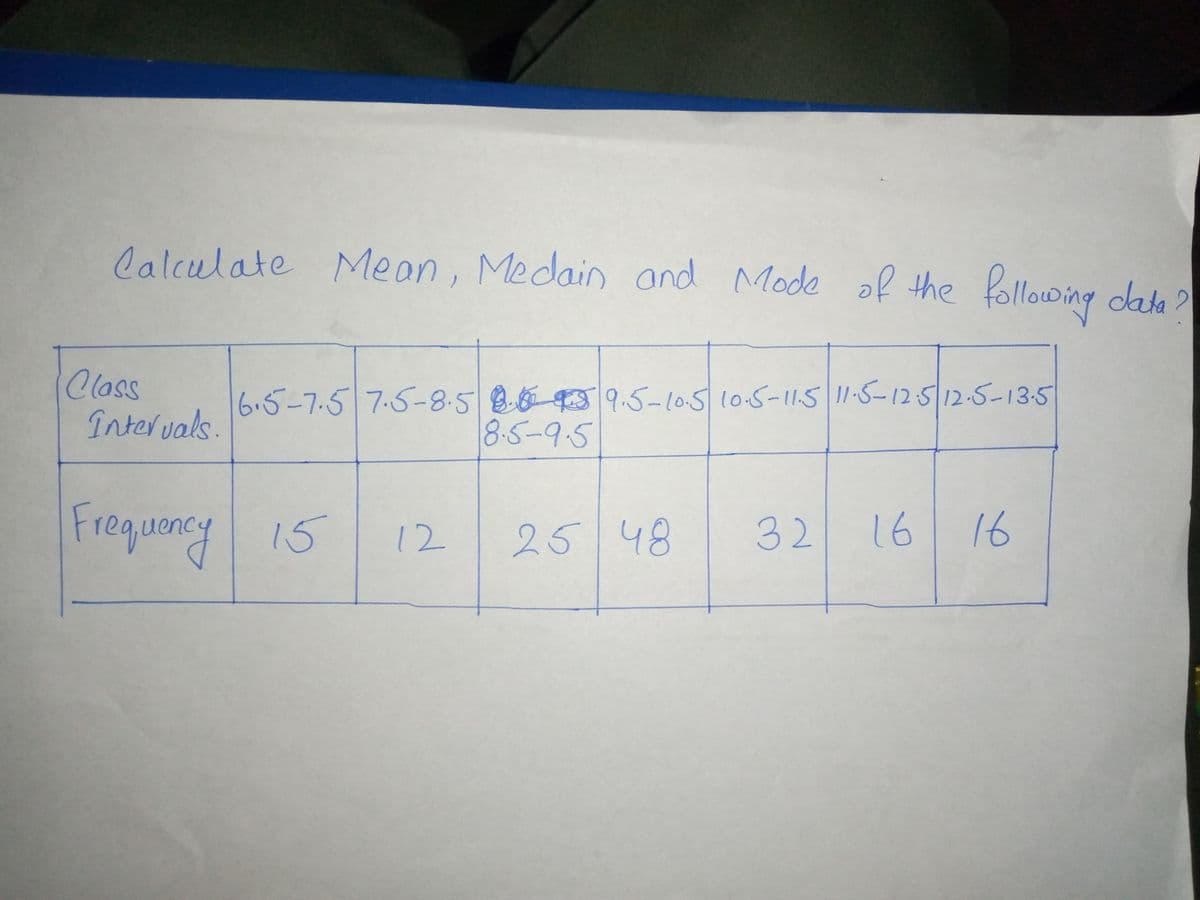 Calculate Mean, Medain and Mode of the following data?
Class Intervals. 6.5-7.5 7.5-8.5 9.5-10.5 10.5-11.5 11.5-12.5 12.5-13.5
8.5-9.5
Frequency 15 12 25 48 32 16 16